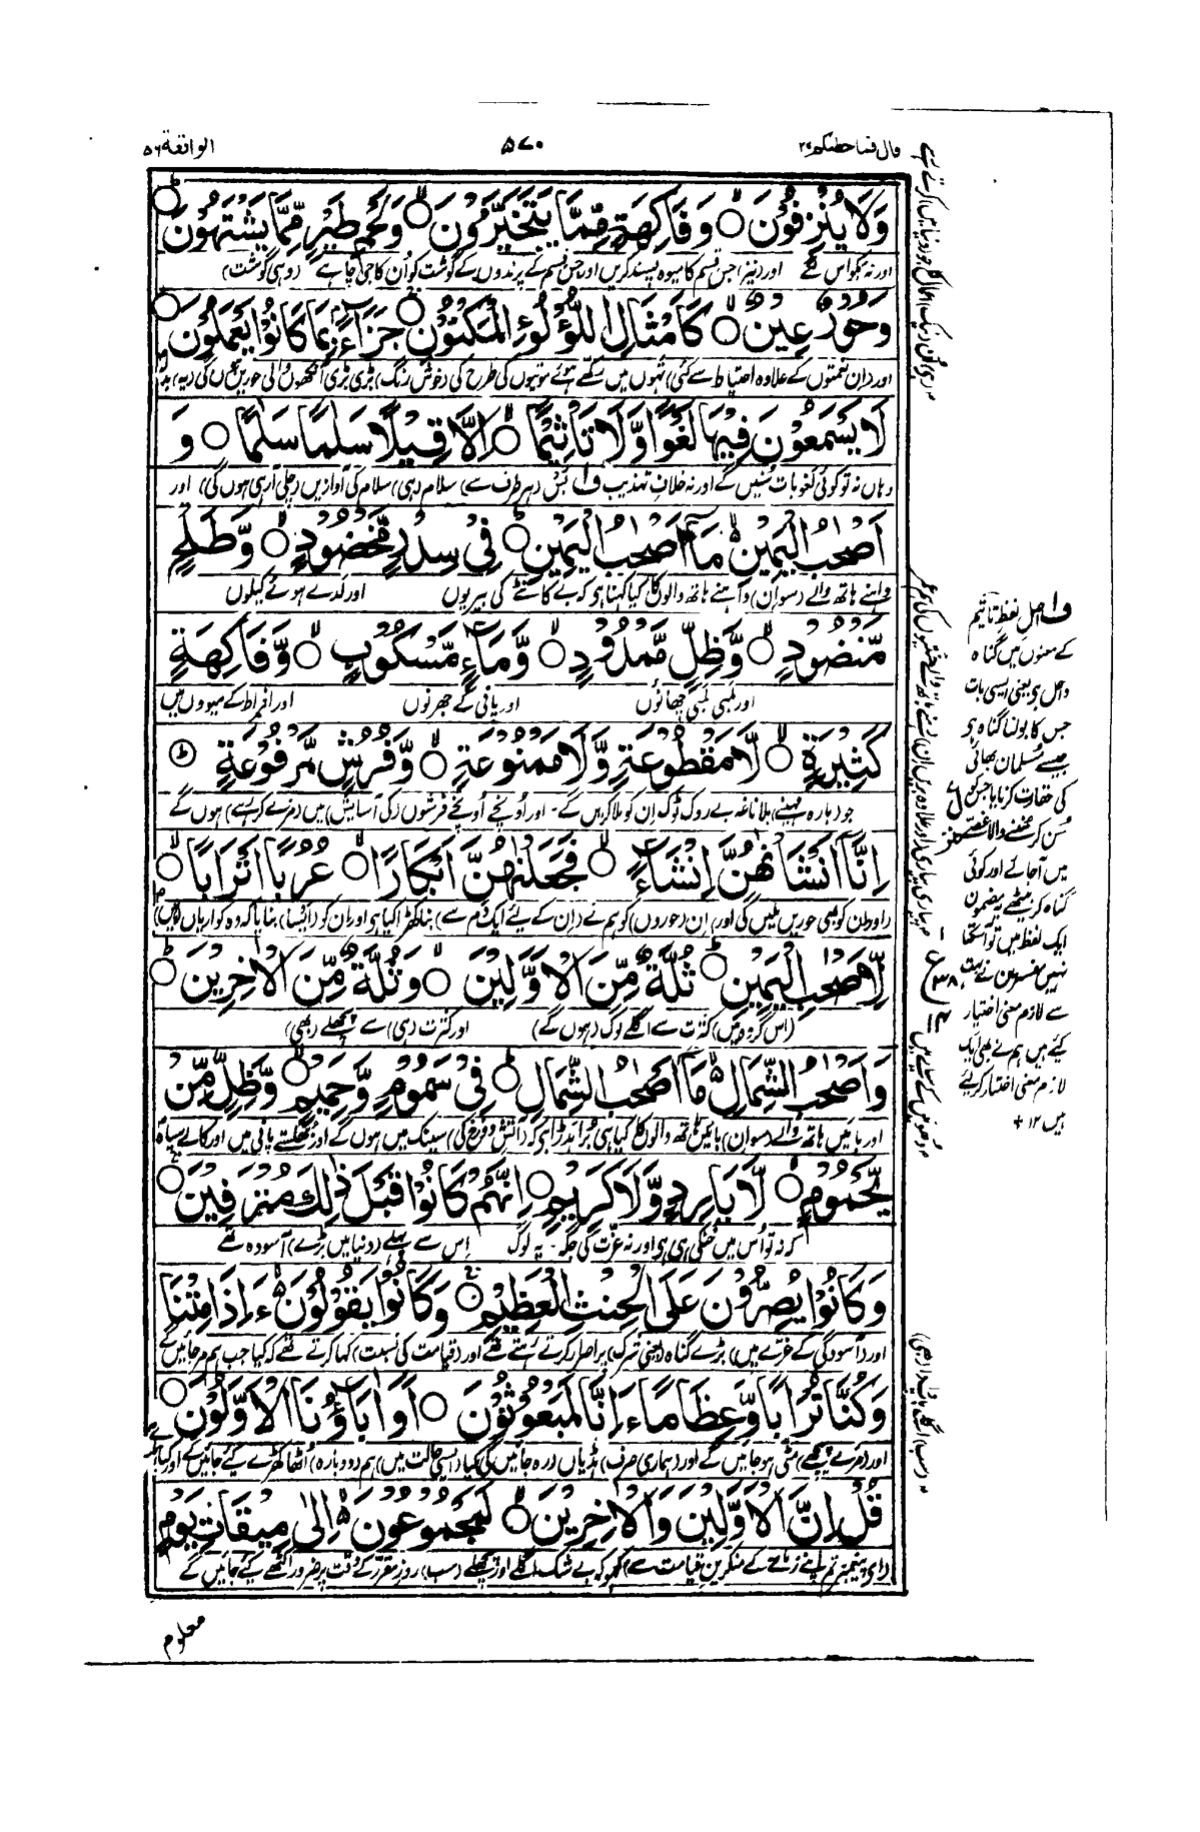 قال فما خطبکم ۲۷
۵۷۰
الواقعة ۵۶
وَلَا يُنْزِفُوْنَ ○ وَفَاكِهَةٍ مِّمَّا يَتَخَيَّرُوْنَ ○ وَلَحْمِ طَيْرٍ مِّمَّا يَشْتَهُوْنَ ○
اور نہ بکواس لگے اور (نیز) جس قسم کا میوہ پسند کریں اور جس قسم کے پرندوں کے گوشت کو اُن کا جی چاہے (وہی گوشت)
وَحُوْرٌ عِيْنٌ ○ كَاَمْثَالِ اللُّؤْلُوءِ الْمَكْنُوْنِ ○ جَزَآءًۢ بِمَا كَانُوْا يَعْمَلُوْنَ ○
اور (ان نعمتوں کے علاوہ احتیاط سے کئی) تہوں میں رکھے ہوئے موتیوں کی طرح کی (خوش رنگ) بڑی بڑی آنکھوں والی حوریں ہوں گی (یہ) بدلہ
لَا يَسْمَعُوْنَ فِيْهَا لَغْوًا وَّلَا تَاْثِيْمًا ○ اِلَّا قِيْلًا سَلٰمًا سَلٰمًا ○ وَ
وہاں نہ تو کوئی لغو بات سُنیں گے اور نہ خلاف تہذیب ف۱ بس (ہر طرف سے) سلام (ہی) سلام کی آوازیں (چلی آرہی ہوں گی) اور
اَصْحٰبُ الْيَمِيْنِ مَآ اَصْحٰبُ الْيَمِيْنِ ○ فِيْ سِدْرٍ مَّخْضُوْدٍ ○ وَّطَلْحٍ
داہنے ہاتھ والے (سو اُن) داہنے ہاتھ والوں کا کیا کہنا ہی کہ بے کانٹے کی بیریوں اور لدے ہوئے کیلوں
مَّنْضُوْدٍ ○ وَّظِلٍّ مَّمْدُوْدٍ ○ وَّمَآءٍ مَّسْكُوْبٍ ○ وَّفَاكِهَةٍ
اور لمبی لمبی چھاؤں اور پانی کے جھرنوں اور افراط کے میووں میں
كَثِيْرَةٍ ○ لَّا مَقْطُوْعَةٍ وَّلَا مَمْنُوْعَةٍ ○ وَّفُرُشٍ مَّرْفُوْعَةٍ ○
جو (بارہ مہینے) بلا ناغہ بے روک ٹوک اِن کو ملا کریں گے۔ اور اُونچے اُونچے فرشوں (کی آسایش) میں (مزے کر رہے) ہوں گے
اِنَّآ اَنْشَاْنٰهُنَّ اِنْشَآءً ○ فَجَعَلْنٰهُنَّ اَبْكَارًا ○ عُرُبًا اَتْرَابًا ○
(اور ان کو بھی حوریں ملیں گی اور) اِن (حوروں) کو ہم نے (اِن کے لیے ایک دم سے) بنا کھڑا کیا ہی اور ان کو (ایسا) بنایا کہ وہ کنواریاں
لِّاَصْحٰبِ الْيَمِيْنِ ○ ثُلَّةٌ مِّنَ الْاَوَّلِيْنَ ○ وَثُلَّةٌ مِّنَ الْاٰخِرِيْنَ ○
(اس گروہ میں) کثرت سے اگلے لوگ (ہوں گے) اور کثرت (ہی) سے پچھلے (بھی)
وَاَصْحٰبُ الشِّمَالِ مَآ اَصْحٰبُ الشِّمَالِ ○ فِيْ سَمُوْمٍ وَّحَمِيْمٍ ○ وَّظِلٍّ مِّنْ
اور بائیں ہاتھ والے (سو ان) بائیں ہاتھ والوں کا کیا ہی بُرا ہدڑا ہی کہ (آتش دوزخ کی) سینک میں ہوں گے اور کھولتے پانی میں اور کالے سیاہ
يَّحْمُوْمٍ ○ لَّا بَارِدٍ وَّلَا كَرِيْمٍ ○ اِنَّهُمْ كَانُوْا قَبْلَ ذٰلِكَ مُتْرَفِيْنَ ○
کہ نہ تو اُس میں خنکی ہی ہو اور نہ عزّت کی جگہ۔ یہ لوگ اِس سے پہلے (دنیا میں بڑے) آسودہ تھے
وَكَانُوْا يُصِرُّوْنَ عَلَى الْحِنْثِ الْعَظِيْمِ ○ وَكَانُوْا يَقُوْلُوْنَ ءَاِذَا مِتْنَا
اور (آسودگی کے غرّے میں) بڑے گناہ (یعنی شرک) پر اصرار کرتے رہتے تھے اور (قیامت کی نسبت) کہا کرتے تھے کہ کیا جب ہم مر جائیں گے
وَكُنَّا تُرَابًا وَّعِظَامًا ءَاِنَّا لَمَبْعُوْثُوْنَ ○ اَوَاٰبَآؤُنَا الْاَوَّلُوْنَ ○
اور (مرے پیچھے) مٹی ہو جائیں گے اور (ہماری صرف) ہڈیاں (رہ جائیں گی) کیا (ایسی حالت میں) ہم (دوبارہ) اٹھا کھڑے کیے جائیں گے اور کیا
قُلْ اِنَّ الْاَوَّلِيْنَ وَالْاٰخِرِيْنَ ○ لَمَجْمُوْعُوْنَ اِلٰى مِيْقَاتِ يَوْمٍ
(ای پیغمبر تم اپنے زمانے کے منکرین قیامت سے) کہو کہ بے شک اگلے اور پچھلے (سب) روز مقرر کے وقت پر ضرور اکٹھے کیے جائیں گے
معلوم
ف۱ اصل لفظ تاثیم
کے معنوں میں گناہ
داخل ہی یعنی ایسی بات
جس کا بولنا گناہ ہو
جیسے مُسلمان بھائی
کی حقارت کرنا یا جس کو
سُن کر سُننے والا غصّے
میں آجائے اور کوئی
گناہ کر بیٹھے یہ مضمون
ایک لفظ میں تو آسکتا
نہیں مفسرین نے بہت
سے لازم معنی اختیار
کیے ہیں ہم نے بھی ایک
لازم معنی اختیار کر لیے
ہیں ۱۲ +